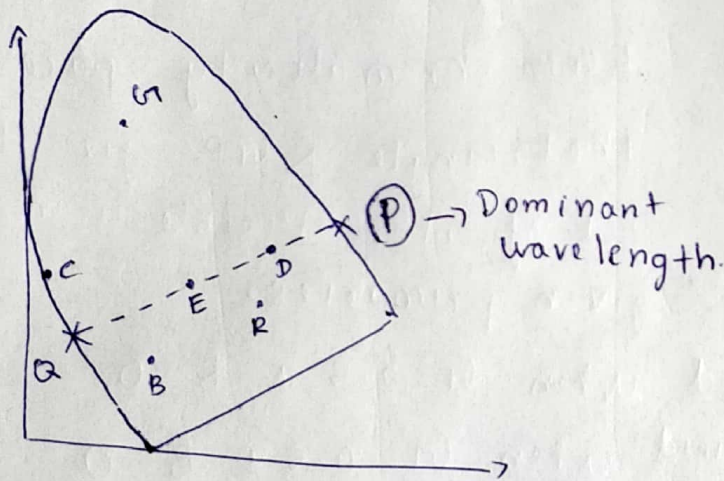 G
P → Dominant
wavelength.
C
D
E
R
Q
B